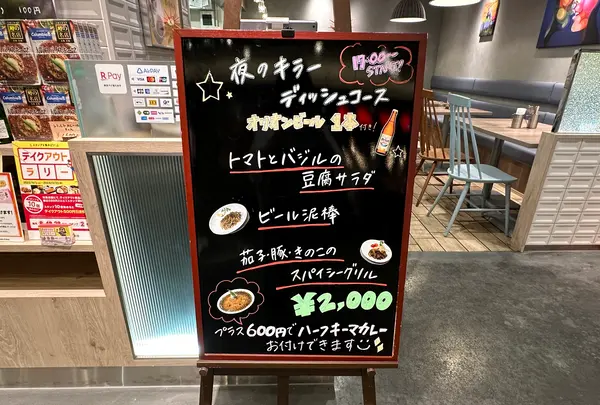 夜のキラー
ディッシュコース
17:00〜
START!!
オリオンビール 1本付き!
トマトとバジルの
豆腐サラダ
ビール泥棒
茄子・豚・きのこの
スパイシーグリル
¥2,000
プラス600円でハーフキーマカレー
お付けできます
100円
R Pay
テイクアウト
ラリー